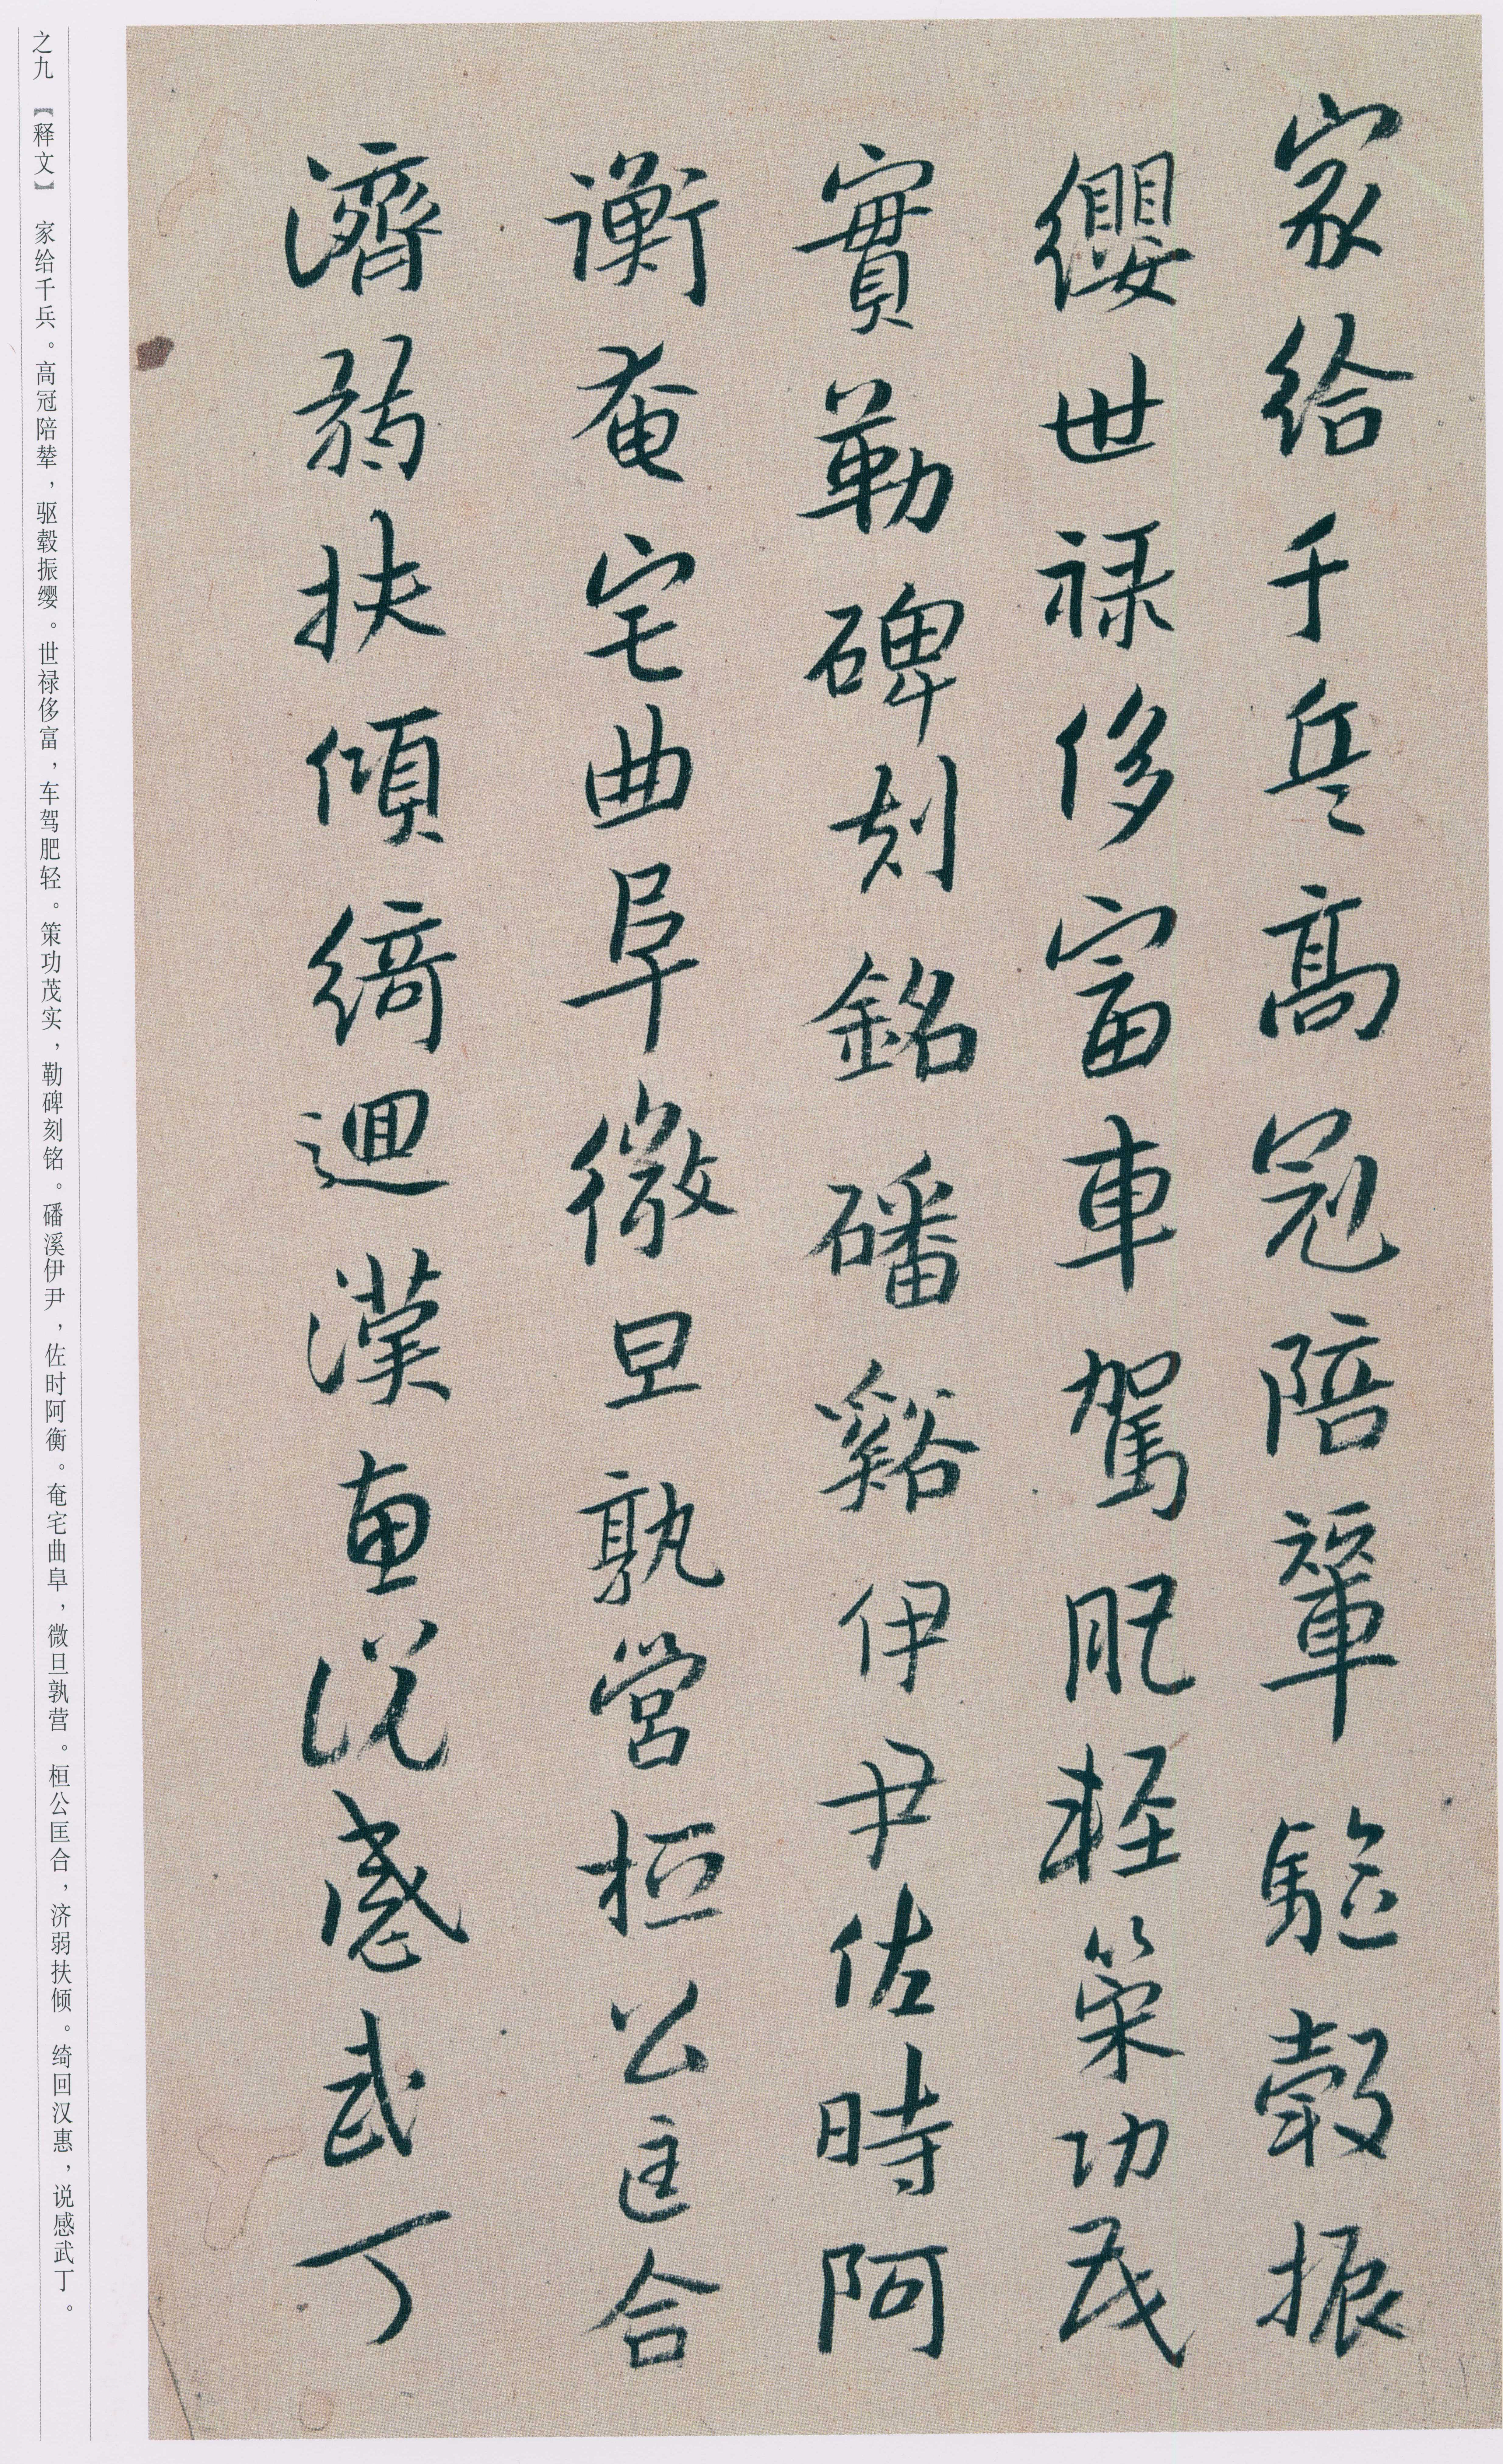 家給千兵高冠陪輦驅轂振
纓世禄侈富車駕肥輕策功茂
實勒碑刻銘磻谿伊尹佐時阿
衡奄宅曲阜微旦孰營桓公匡合
濟弱扶傾綺迴漢惠説感武丁
之九 【释文】 家给千兵。高冠陪辇，驱毂振缨。世禄侈富，车驾肥轻。策功茂实，勒碑刻铭。磻溪伊尹，佐时阿衡。奄宅曲阜，微旦孰营。桓公匡合，济弱扶倾。绮回汉惠，说感武丁。